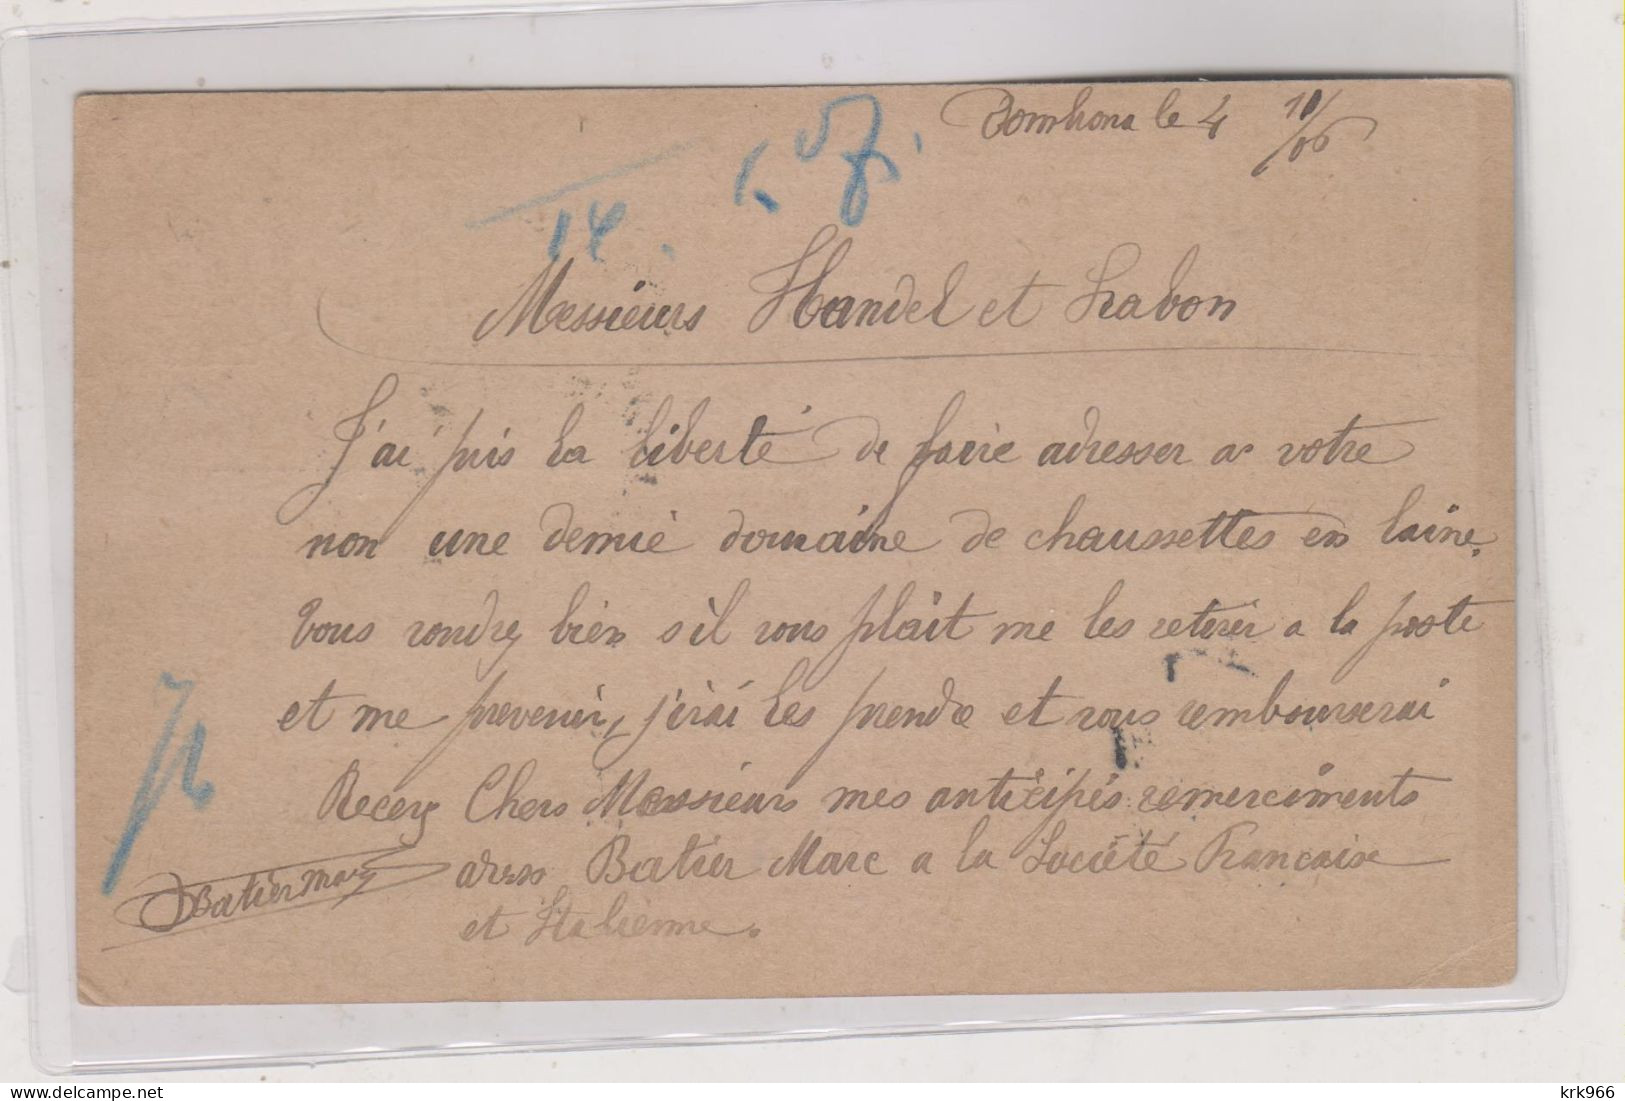 le 4 10/06
14.
Messieurs Handel et Labon
J'ai pris la liberté de faire adresser a votre
non une demie domaine de chaussettes en laine.
Vous vondrez bien s'il vous plait me les retirer a la poste
et me prevenir, j'irai les prendre et vous rembourserai
Recevez Chers Messieurs mes anticipés remerciments
Batier Marc a la Société Francaise
et Italienne.
Batier Marc
krk966